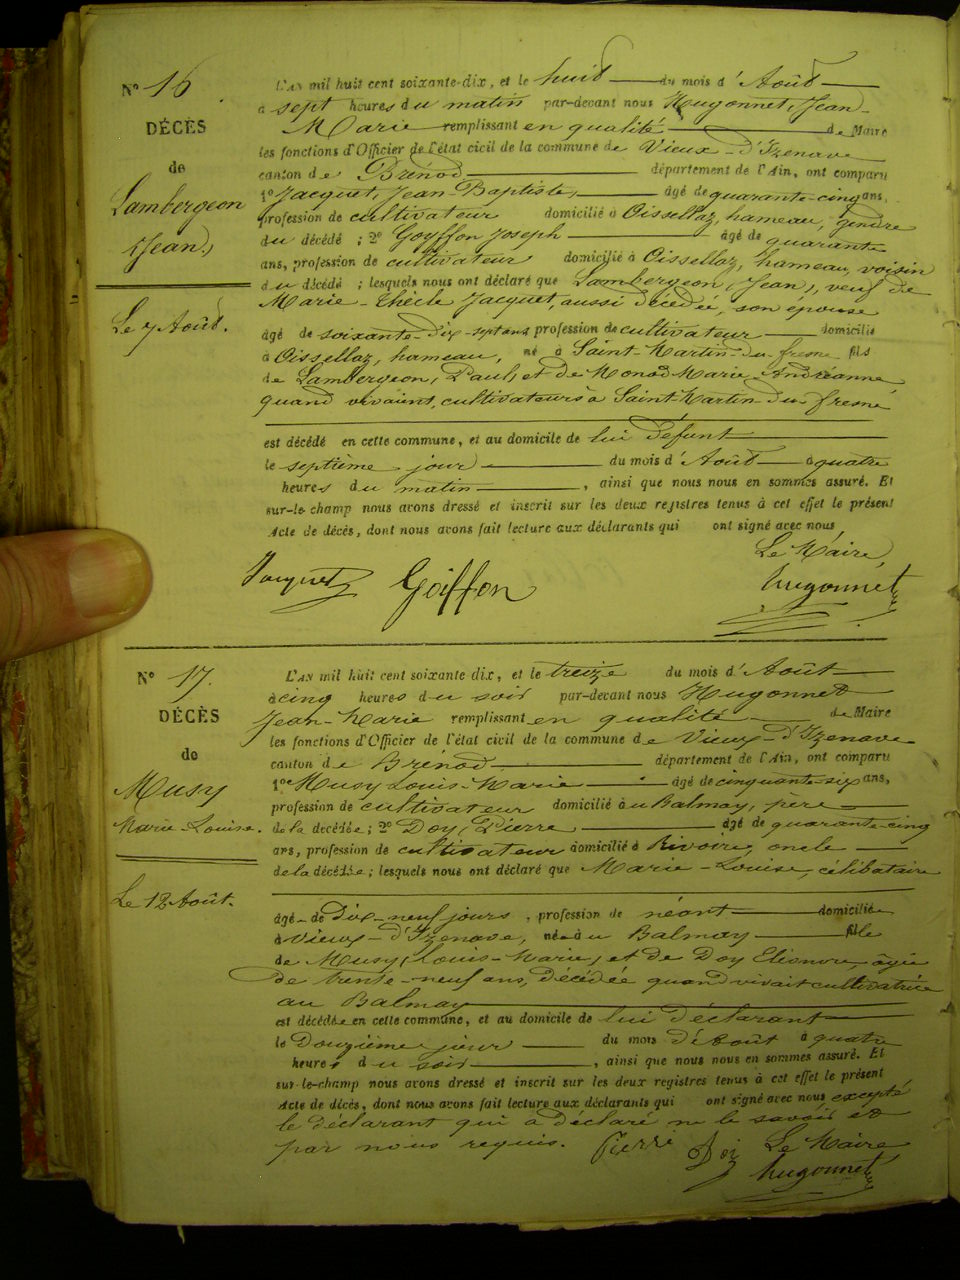 N° 16
DÉCÈS
de
Lambergeon
(Jean)
Le 7 Août.
L'AN mil huit cent soixante-dix, et le huit du mois d'Août
à sept heures du matin par-devant nous Hugonnet, Jean-
Marie remplissant en qualité de Maire
les fonctions d'Officier de l'état civil de la commune de Vieux-d'Izenave
canton de Brénod département de l'Ain, ont comparu
1° Jacquet, Jean Baptiste, âgé de quarante-cinq ans,
profession de cultivateur domicilié à Oissellaz, hameau, gendre
du décédé ; 2° Goyffon Joseph âgé de quarante
ans, profession de cultivateur domicilié à Oissellaz, hameau, voisin
du décédé ; lesquels nous ont déclaré que Lambergeon, (Jean), veuf de
Marie-Thècle Jacquet, aussi décédée, son épouse
âgé de soixante-dix-sept ans profession de cultivateur domicilié
à Oissellaz, hameau, né à Saint-Martin-du-fresne fils
de Lambergeon, Paul, et de Monod Marie-Andréanne
quand vivaient, cultivateurs à Saint-Martin-du-fresne
est décédé en cette commune, et au domicile de lui défunt
le septième jour du mois d'Août à quatre
heures du matin, ainsi que nous nous en sommes assuré. Et
sur-le-champ nous avons dressé et inscrit sur les deux registres tenus à cet effet le présent
Acte de décès, dont nous avons fait lecture aux déclarants qui ont signé avec nous
Le Maire,
Jacquet Goiffon Hugonnet
N° 17.
DÉCÈS
de
Musy
Marie-Louise.
Le 12 Août.
L'AN mil huit cent soixante dix, et le treize du mois d'Août
à cinq heures du soir par-devant nous Hugonnet
Jean-Marie remplissant en qualité de Maire
les fonctions d'Officier de l'état civil de la commune de Vieux-d'Izenave
canton de Brénod département de l'Ain, ont comparu
1° Musy Louis-Marie âgé de cinquante-six ans,
profession de cultivateur domicilié au Balmay, père
de la décédée ; 2° Doy, Pierre âgé de quarante-cinq
ans, profession de cultivateur domicilié à Rivoire, oncle
de la décédée ; lesquels nous ont déclaré que Marie-Louise, célibataire
âgé de dix-neuf jours, profession de néant domiciliée
à Vieux-d'Izenave, née au Balmay fille
de Musy (Louis-Marie) et de Doy Eléonore, âgée
de trente-neuf ans, décédée quand vivait cultivatrice
au Balmay
est décédée en cette commune, et au domicile de lui déclarant
le Douzième jour du mois d'Août à quatre
heures du soir, ainsi que nous nous en sommes assuré. Et
sur-le-champ nous avons dressé et inscrit sur les deux registres tenus à cet effet le présent
Acte de décès, dont nous avons fait lecture aux déclarants qui ont signé avec nous excepté
le déclarant qui a déclaré ne le savoir et
par nous requis. Pierre Doi Le Maire
Hugonnet